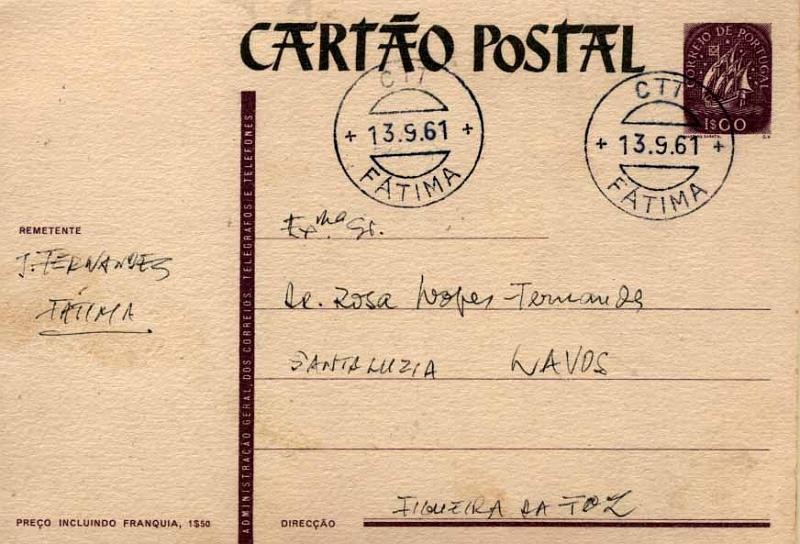 CARTÃO POSTAL
CORREIO DE PORTUGAL
1$00
CTT
13.9.61
FÁTIMA
CTT
13.9.61
FÁTIMA
ADMINISTRAÇÃO GERAL DOS CORREIOS, TELEGRAFOS E TELEFONES
REMETENTE
J. FERNANDES
FÁTIMA
Exma. Sr.
Rosa Lopes Fernandes
SANTA LUZIA LAVOS
FIGUEIRA DA FOZ
DIRECÇÃO
PREÇO INCLUINDO FRANQUIA, 1$50